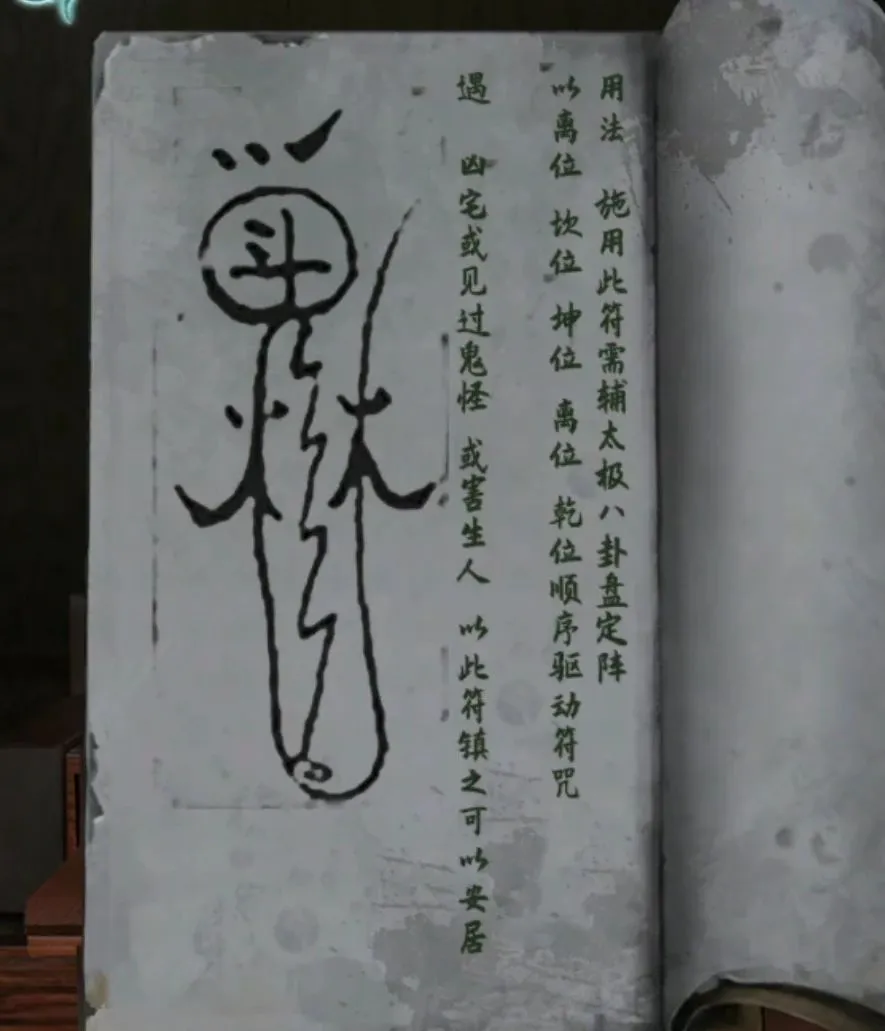 用法 施用此符需辅太极八卦盘定阵
以离位 坎位 坤位 离位 乾位顺序驱动符咒
遇 凶宅或见过鬼怪 或害生人 以此符镇之可以安居
斗